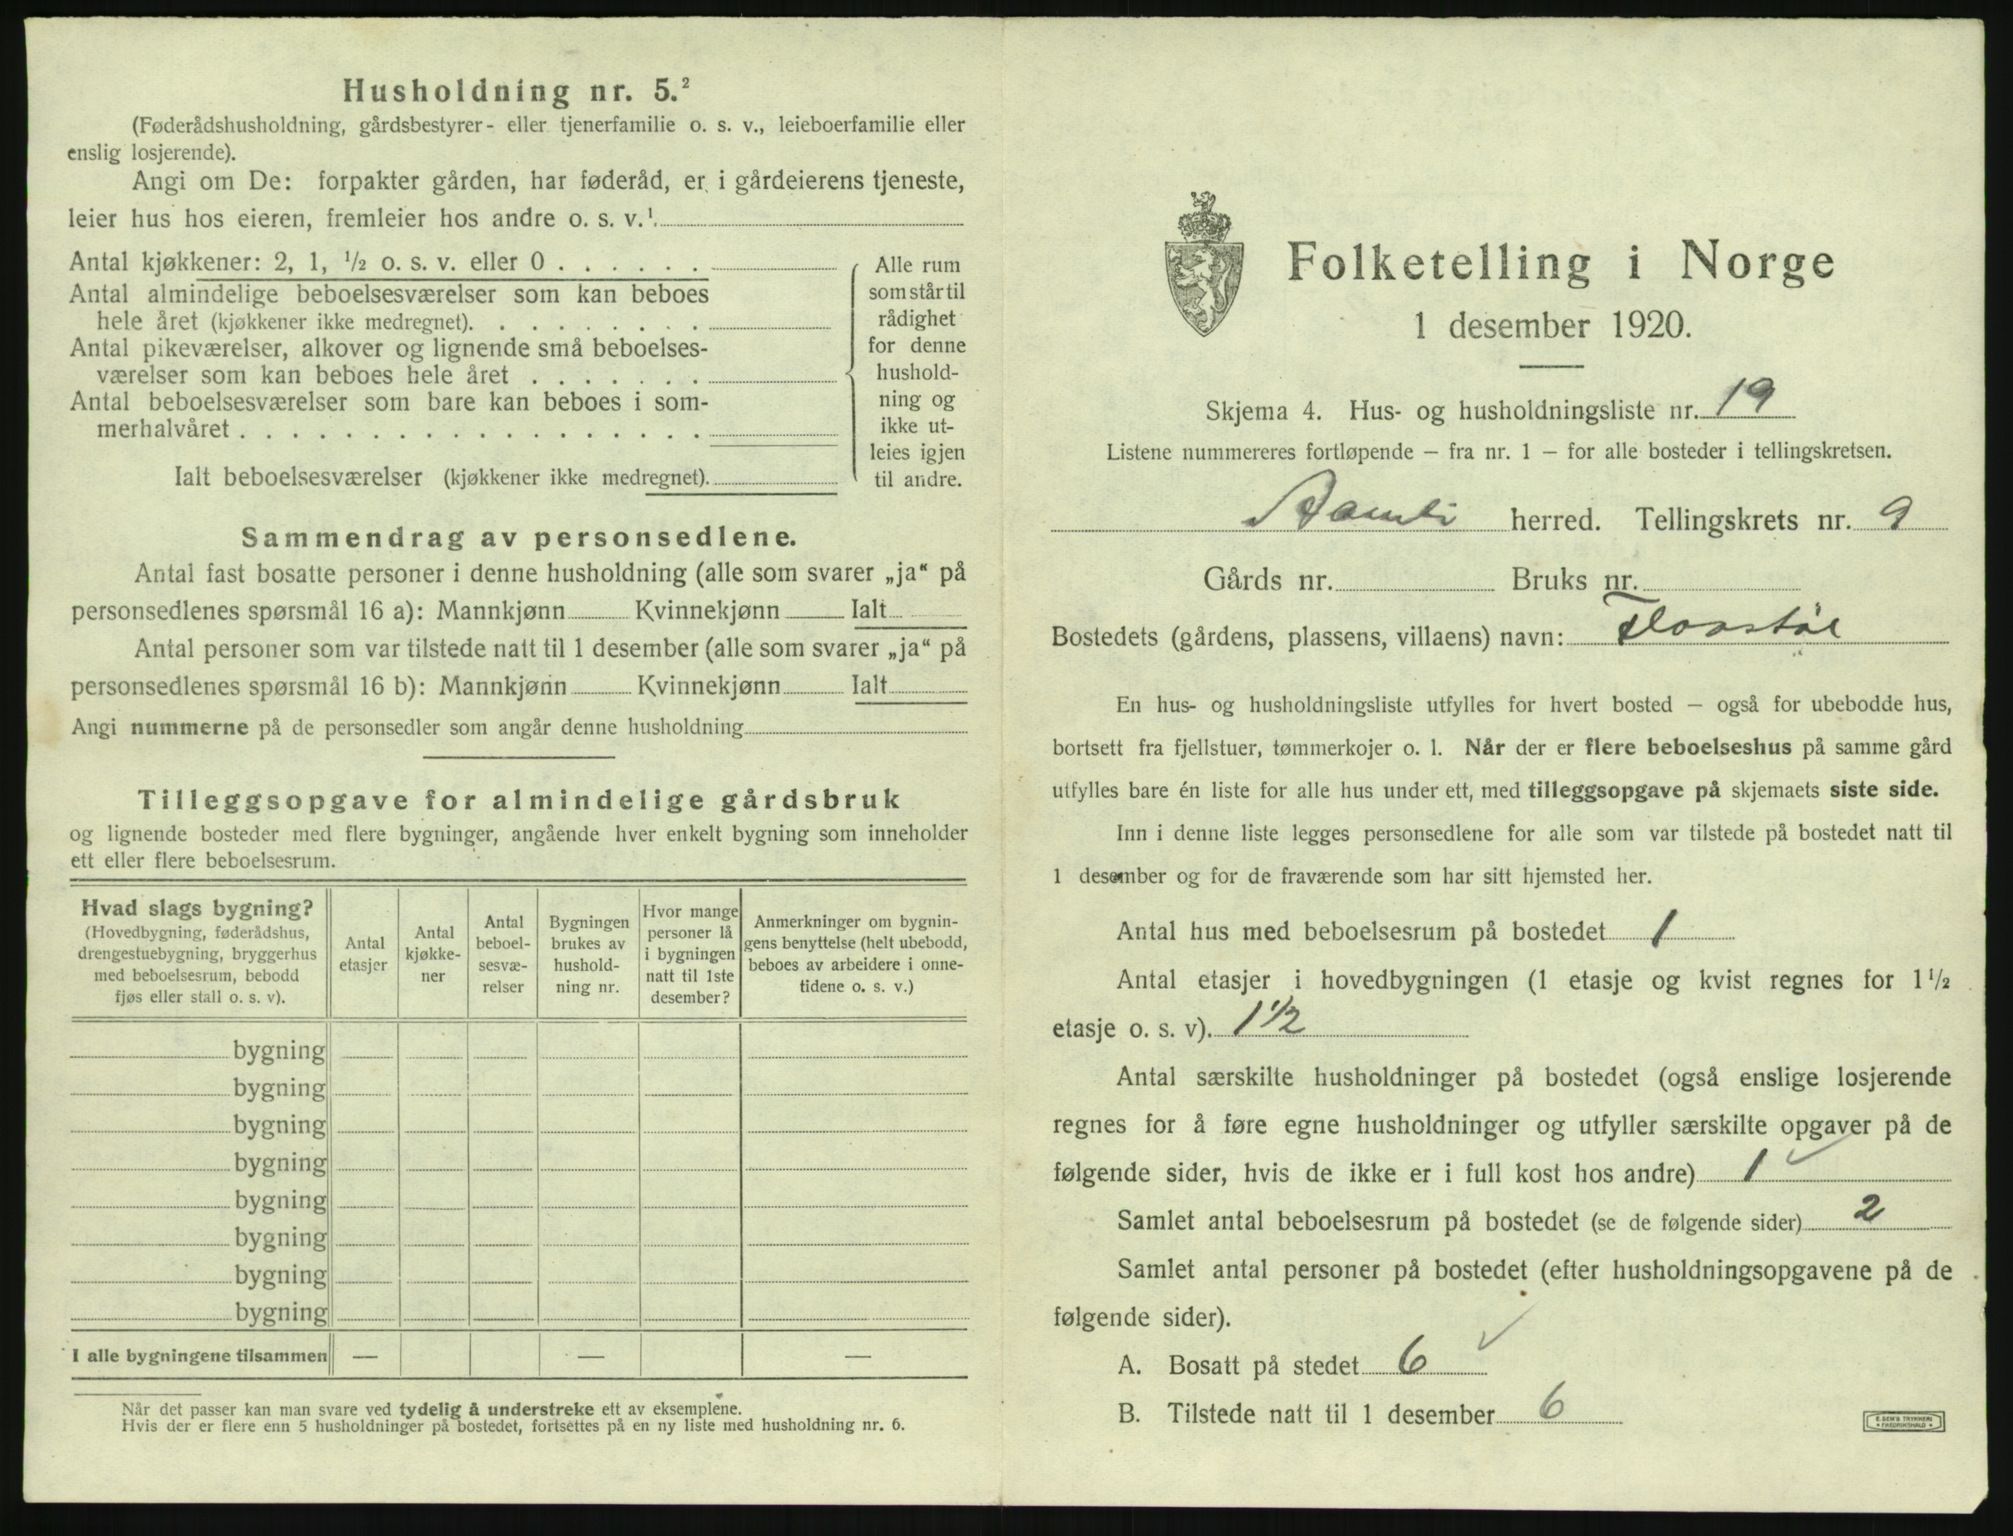 Husholdning nr. 5.²
(Føderådshusholdning, gårdsbestyrer- eller tjenerfamilie o. s. v., leieboerfamilie eller
enslig losjerende).
Angi om De: forpakter gården, har føderåd, er i gårdeierens tjeneste,
leier hus hos eieren, fremleier hos andre o. s. v.¹
Antal kjøkkener: 2, 1, ½ o. s. v. eller 0 . . . . . .
Antal almindelige beboelsesværelser som kan beboes
hele året (kjøkkener ikke medregnet). . . . . . . . .
Antal pikeværelser, alkover og lignende små beboelses-
værelser som kan beboes hele året . . . . . . .
Antal beboelsesværelser som bare kan beboes i som-
merhalvåret . . . . . . . . . . . . . . . . . .
Ialt beboelsesværelser (kjøkkener ikke medregnet).
Alle rum
som står til
rådighet
for denne
hushold-
ning og
ikke ut-
leies igjen
til andre.
Sammendrag av personsedlene.
Antal fast bosatte personer i denne husholdning (alle som svarer „ja“ på
personsedlenes spørsmål 16 a): Mannkjønn Kvinnekjønn Ialt
Antal personer som var tilstede natt til 1 desember (alle som svarer „ja“ på
personsedlenes spørsmål 16 b): Mannkjønn Kvinnekjønn Ialt
Angi nummerne på de personsedler som angår denne husholdning
Tilleggsopgave for almindelige gårdsbruk
og lignende bosteder med flere bygninger, angående hver enkelt bygning som inneholder
ett eller flere beboelsesrum.
Hvad slags bygning?
(Hovedbygning, føderådshus,
drengestuebygning, bryggerhus
med beboelsesrum, bebodd
fjøs eller stall o. s. v).
Antal
etasjer
Antal
kjøkke-
ner
Antal
beboel-
sesvæ-
relser
Bygningen
brukes av
hushold-
ning nr.
Hvor mange
personer lå
i bygningen
natt til 1ste
desember?
Anmerkninger om bygnin-
gens benyttelse (helt ubebodd,
beboes av arbeidere i onne-
tidene o. s. v.)
bygning
bygning
bygning
bygning
bygning
bygning
bygning
bygning
I alle bygningene tilsammen — — —
Når det passer kan man svare ved tydelig å understreke ett av eksemplene.
Hvis der er flere enn 5 husholdninger på bostedet, fortsettes på en ny liste med husholdning nr. 6.
Folketelling i Norge
1 desember 1920.
Skjema 4. Hus- og husholdningsliste nr. 19
Listene nummereres fortløpende — fra nr. 1 — for alle bosteder i tellingskretsen.
Aamli herred. Tellingskrets nr. 9
Gårds nr. Bruks nr.
Bostedets (gårdens, plassens, villaens) navn: Flaastøl
En hus- og husholdningsliste utfylles for hvert bosted — også for ubebodde hus,
bortsett fra fjellstuer, tømmerkojer o. l. Når der er flere beboelseshus på samme gård
utfylles bare én liste for alle hus under ett, med tilleggsopgave på skjemaets siste side.
Inn i denne liste legges personsedlene for alle som var tilstede på bostedet natt til
1 desember og for de fraværende som har sitt hjemsted her.
Antal hus med beboelsesrum på bostedet 1
Antal etasjer i hovedbygningen (1 etasje og kvist regnes for 1½
etasje o. s. v). 1½
Antal særskilte husholdninger på bostedet (også enslige losjerende
regnes for å føre egne husholdninger og utfyller særskilte opgaver på de
følgende sider, hvis de ikke er i full kost hos andre) 1 ✓
Samlet antal beboelsesrum på bostedet (se de følgende sider) 2
Samlet antal personer på bostedet (efter husholdningsopgavene på de
følgende sider).
A. Bosatt på stedet 6 ✓
B. Tilstede natt til 1 desember 6
E. SEM'S TRYKKERI
• FREDRIKSHALD •